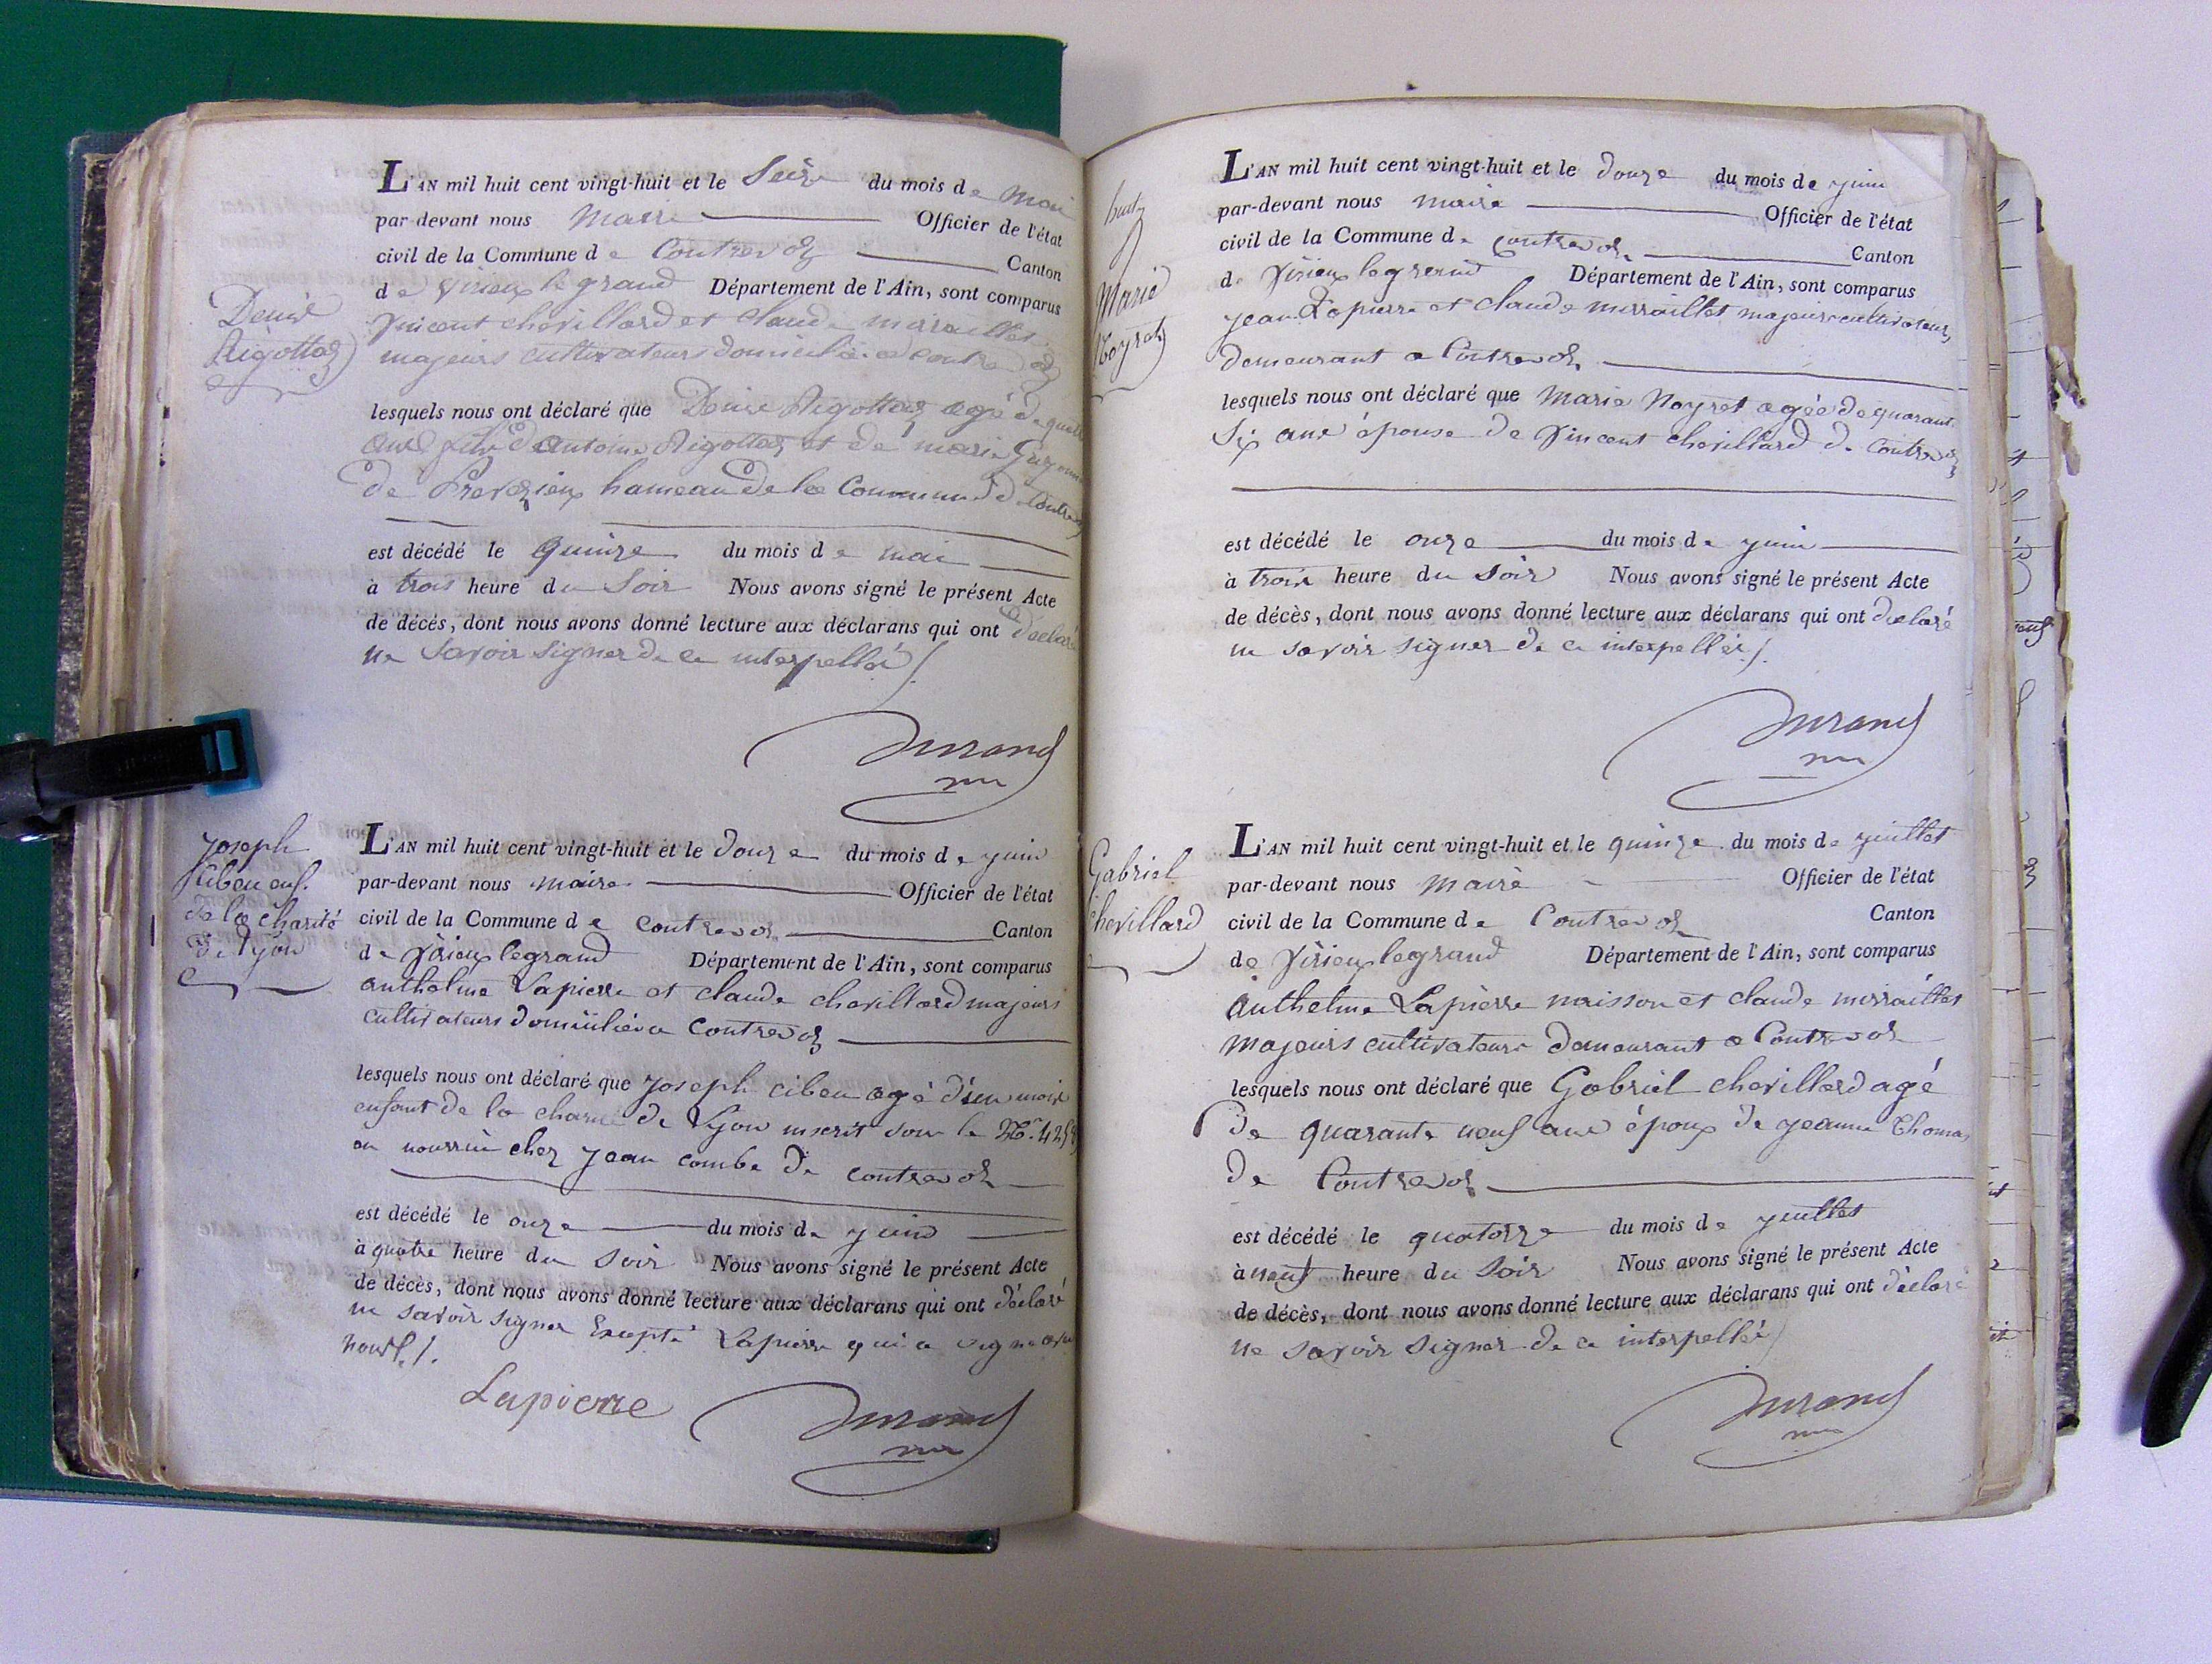 Denise
Rigottaz
L'AN mil huit cent vingt-huit et le Seize du mois de Mai
par-devant nous Maire Officier de l'état
civil de la Commune de Contrevoz Canton
de Virieux le grand Département de l'Ain, sont comparus
Vincent chevillard et claude mirraillet
majeurs cultivateurs domiciliés a contrevoz
lesquels nous ont déclaré que Denise Rigottaz agé de
ans fille d'antoine Rigottaz et de marie
de Preveyzieux hameau de la Commune de Contrevoz
est décédé le quinze du mois de mai
à trois heure du Soir Nous avons signé le présent Acte
de décés, dont nous avons donné lecture aux déclarans qui ont déclaré
ne Savoir signer de ce interpellés /.
Durand
Joseph
Cibeu enf.
de la charité
de Lyon
L'AN mil huit cent vingt-huit et le douze du mois de juin
par-devant nous maire Officier de l'état
civil de la Commune de contrevoz Canton
de Virieux legrand Département de l'Ain, sont comparus
anthelme Lapierre et claude chevillard majeurs
cultivateurs domiciliés a Contrevoz
lesquels nous ont déclaré que Joseph cibeu agé d'un mois
enfant de la charité de Lyon inscrit sous le N.º
en nourrice chez jean combe de contrevoz
est décédé le onze du mois de juin
à quatre heure du soir Nous avons signé le présent Acte
de décès, dont nous avons donné lecture aux déclarans qui ont déclaré
ne savoir signer Excepté Lapierre qui a signé avec
nous /.
Lapierre
Durand
huit
Marie
Noyret
L'AN mil huit cent vingt-huit et le douze du mois de juin
par-devant nous maire Officier de l'état
civil de la Commune de contrevoz Canton
de Virieux legrand Département de l'Ain, sont comparus
jean Lapierre et claude mirraillet majeurs cultivateurs
demeurant a Contrevoz
lesquels nous ont déclaré que Marie Noyret agée de quarante
Six ans épouse de Vincent chevillard de contrevoz
est décédé le onze du mois de juin
à trois heure du soir Nous avons signé le présent Acte
de décès, dont nous avons donné lecture aux déclarans qui ont déclaré
ne savoir signer de ce interpellés /.
Durand
Gabriel
chevillard
L'AN mil huit cent vingt-huit et le quinze du mois de juillet
par-devant nous Maire Officier de l'état
civil de la Commune de Contrevoz Canton
de Virieux legrand Département de l'Ain, sont comparus
Anthelme Lapierre maisson et claude mirraillet
majeurs cultivateurs demeurant a Contrevoz
lesquels nous ont déclaré que Gabriel chevillard agé
de quarante neuf ans époux de jeanne Thomas
de Contrevoz
est décédé le quatorze du mois de juillet
à neuf heure du Soir Nous avons signé le présent Acte
de décès, dont nous avons donné lecture aux déclarans qui ont déclaré
ne savoir signer de ce interpellés /
Durand